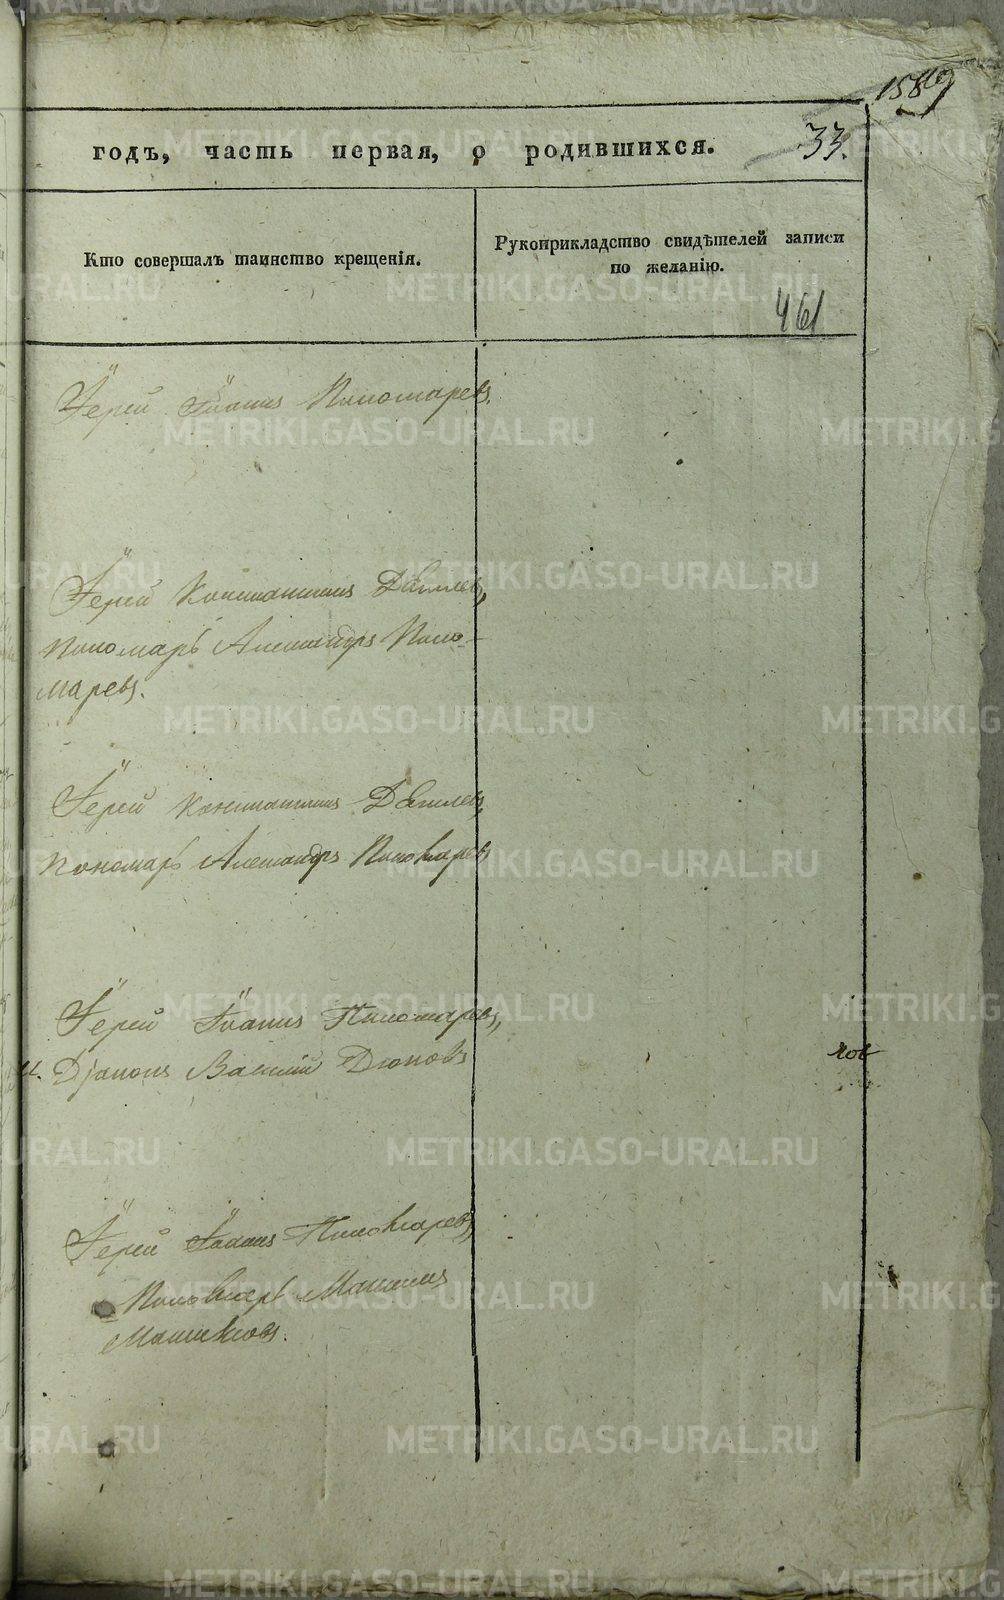 годъ, часть первая, о родившихся.
33.
Кто совершалъ таинство крещенія.
Рукоприкладство свидѣтелей записи
по желанію.
461
Іерей Іоаннъ Пономаревъ.
Іерей Константинъ
Пономарь Александръ Поно-
маревъ.
Іерей Константинъ
Пономарь Александръ Пономаревъ
Іерей Іоаннъ Пономаревъ,
и. Діаконъ Василій
Іерей Іоаннъ Пономаревъ,
Пономарь
METRIKI.GASO-URAL.RU